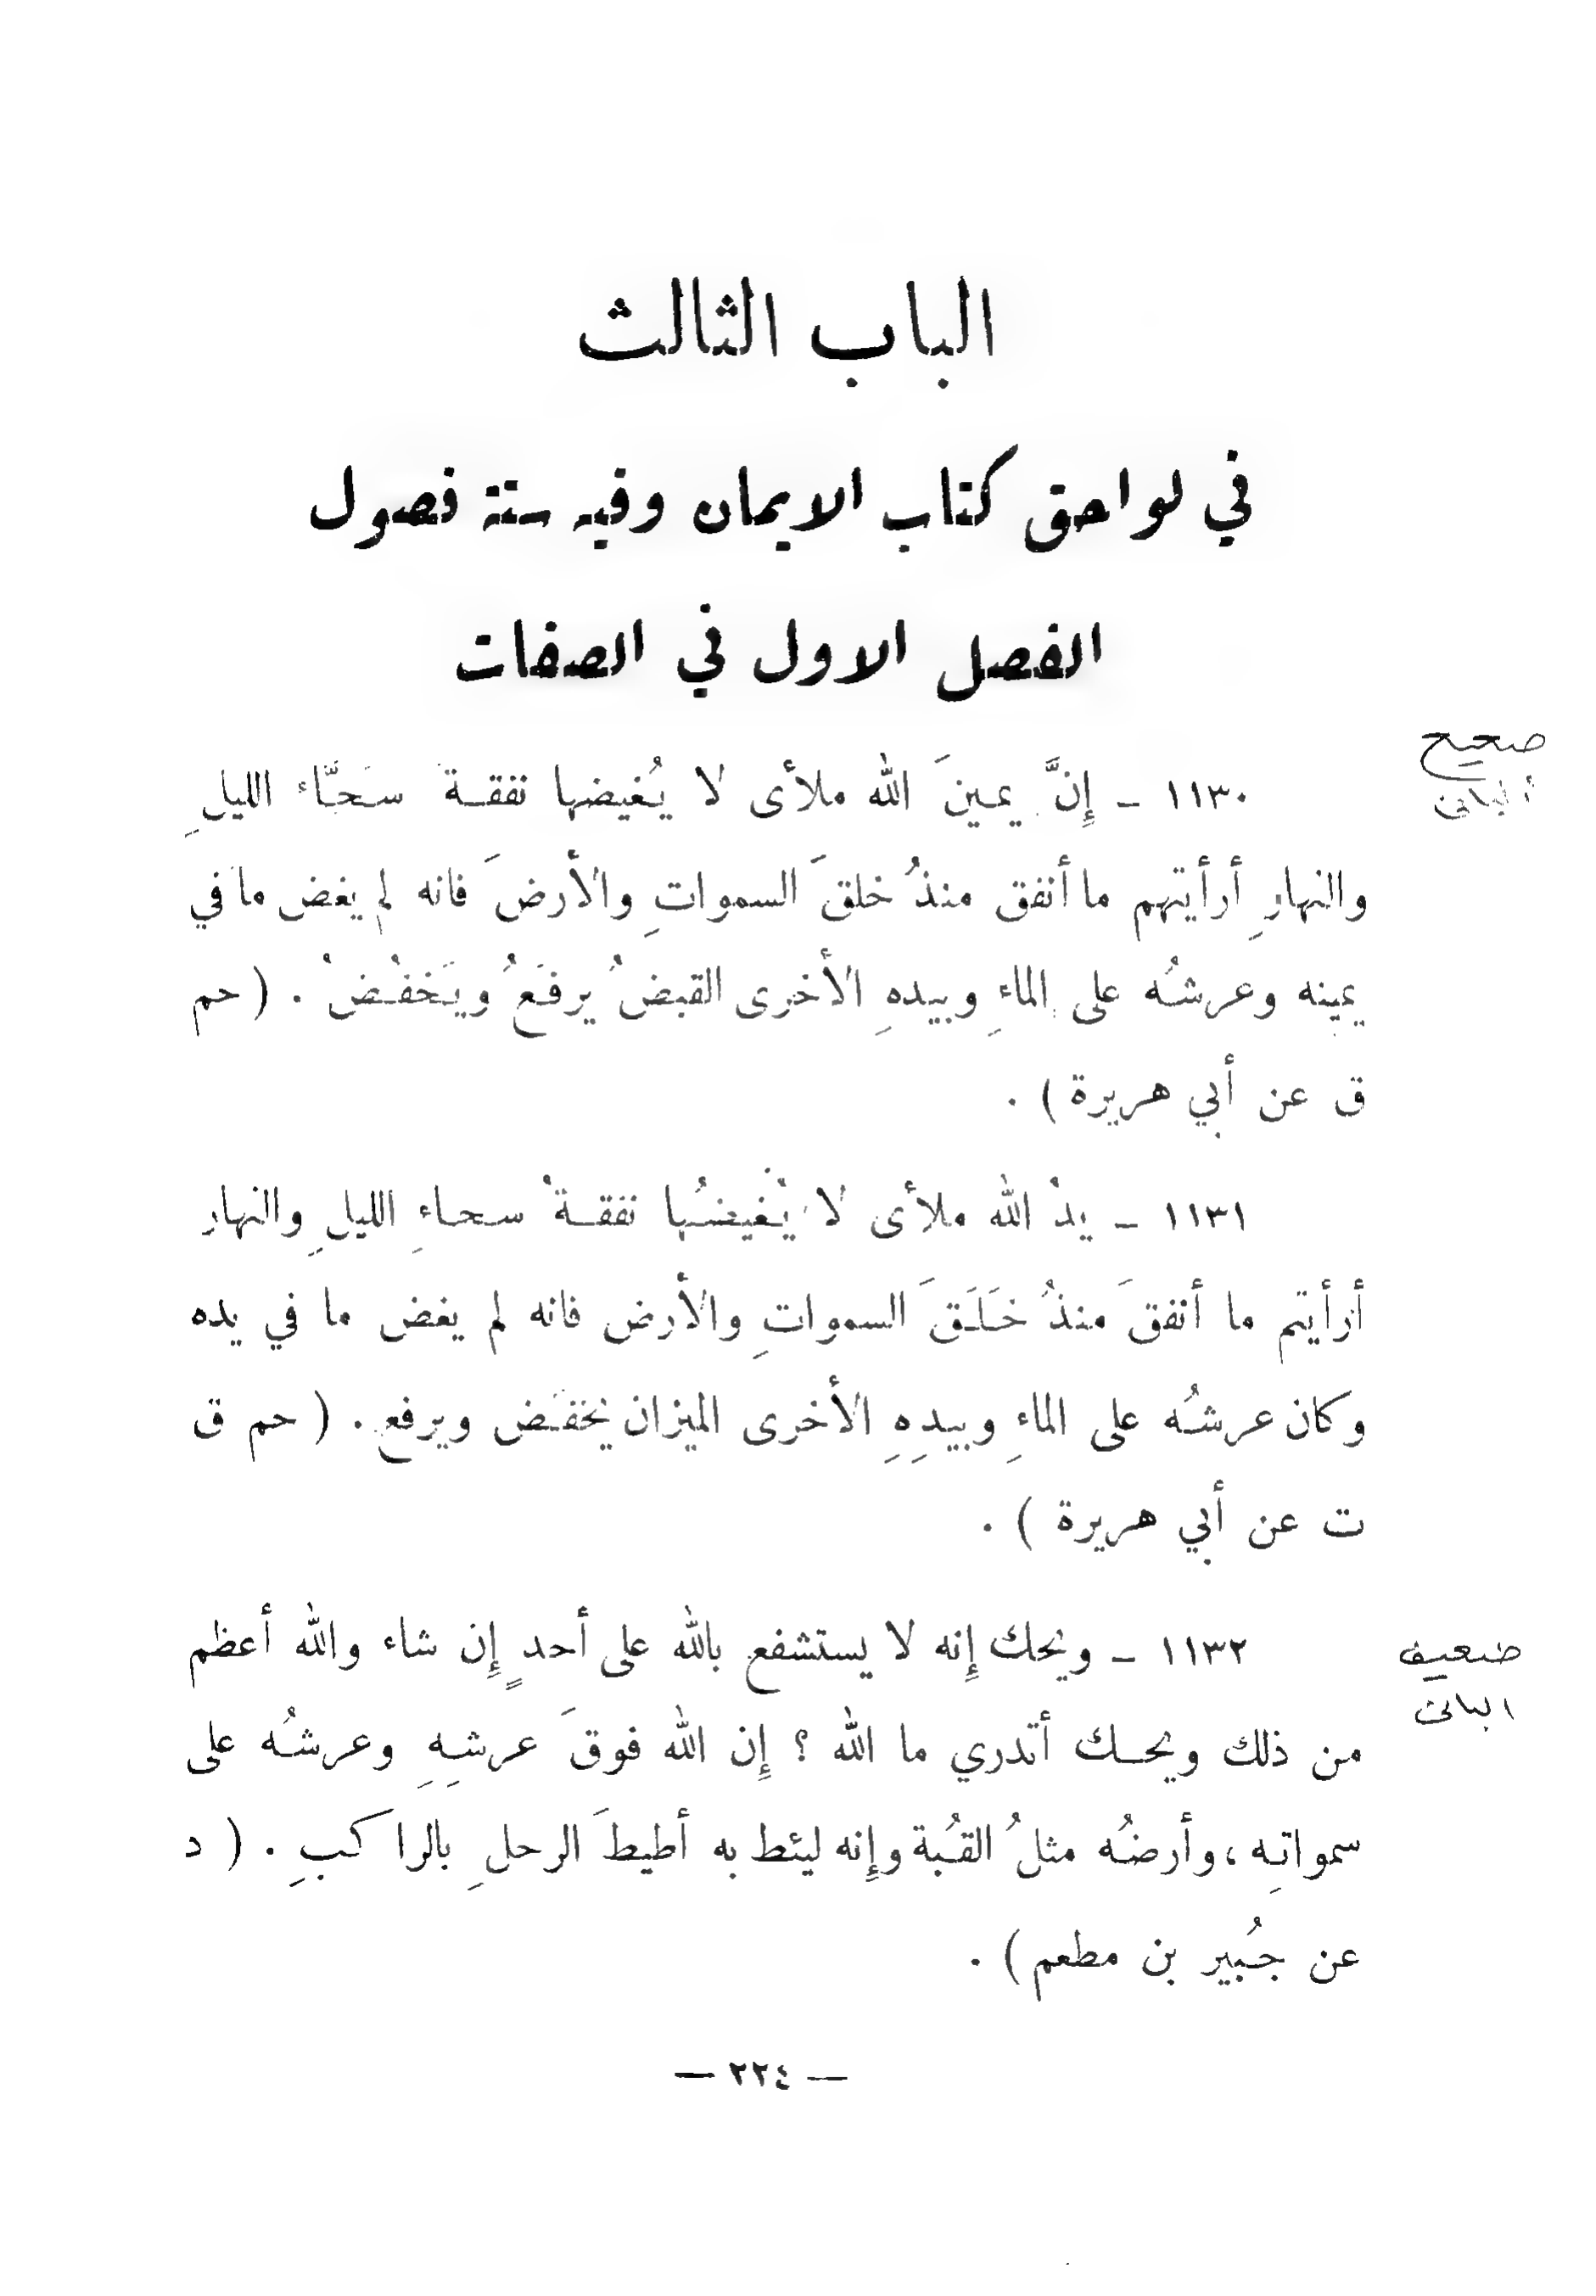 الباب الثالث
في لواحق كتاب الايمان وفيه ستة فصول
الفصل الاول في الصفات
صحيح
ألباني
١١٣٠ ــ إِنَّ يمينَ الله ملأى لا يُغيضها نفقـة سَحَّاء الليلِ
والنهارِ أرأيتهم ما أنفق منذُ خلقَ السمواتِ والأرضَ فانه لم يغض ما في
يمينه وعرشُه على الماءِ وبيدهِ الأخرى القبضُ يرفَعُ ويَخفُضُ . ( حم
ق عن أبي هريرة ) .
١١٣١ ــ يدُ الله ملأى لا يُغيضُها نفقـةُ سحاءِ الليلِ والنهار
أرأيتم ما أنفقَ منذُ خَلَقَ السمواتِ والأرض فانه لم يغض ما في يده
وكان عرشُه على الماءِ وبيدِهِ الأخرى الميزان يخفَض ويرفع . ( حم ق
ت عن أبي هريرة ) .
ضعيف
البانى
١١٣٢ ــ ويحك إِنه لا يستشفع بالله على أحدٍ إِن شاء والله أعظم
من ذلك ويحـك أتدري ما الله ؟ إِن الله فوقَ عرشِهِ وعرشُه على
سمواتِه ، وأرضُه مثلُ القُبة وإِنه ليئط به أطيطَ الرحلِ بالراكبِ . ( د
عن جُبير بن مطعم ) .
— ٢٢٤ —